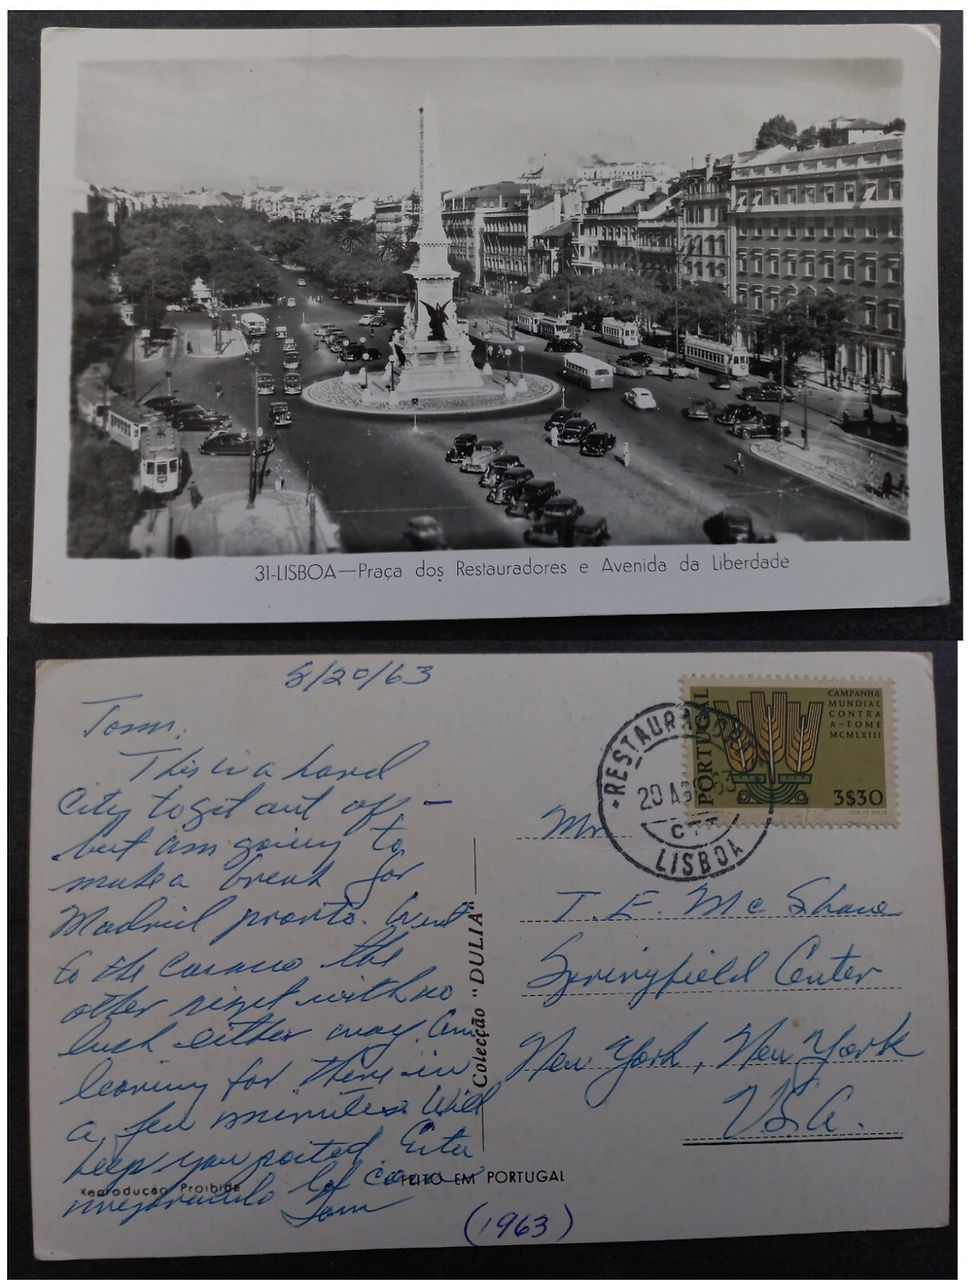 31-LISBOA—Praça dos Restauradores e Avenida da Liberdade
8/20/63
Tom,
This is a hard
City to get out off —
but am going to
make a break for
Madrid pronto. Went
to the Casino the
other night with no
luck either way. Am
leaving for there in
a few minutes. Will
keep you posted. Esta
of course
Tom
Reprodução Proibida
FEITO EM PORTUGAL
(1963)
Colecção "DULIA"
RESTAURADORES
20 AGO 63
CTT
LISBOA
PORTUGAL
CAMPANHA
MUNDIAL
CONTRA
A-FOME
MCMLXIII
3$30
Mr.
T. E. Mc Shane
Springfield Center
New York, New York
U.S.A.